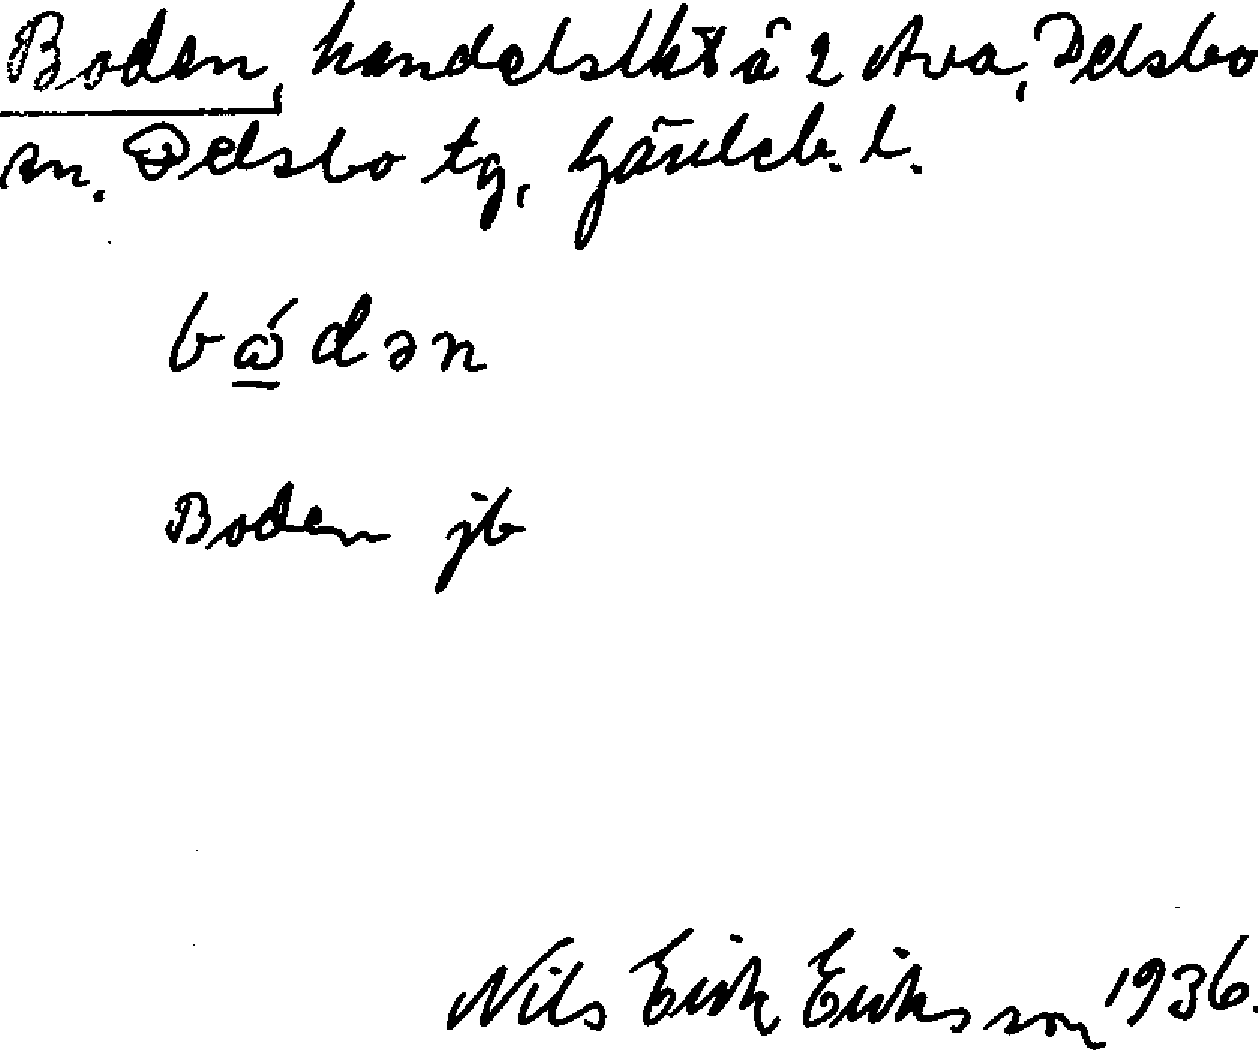 Boden, handelslht å 2 Ava, Delsbo
sn. Delsbo tg, Gävleb. l.
bǻdən
Boden jb
Nils Erik Eriksson 1936.